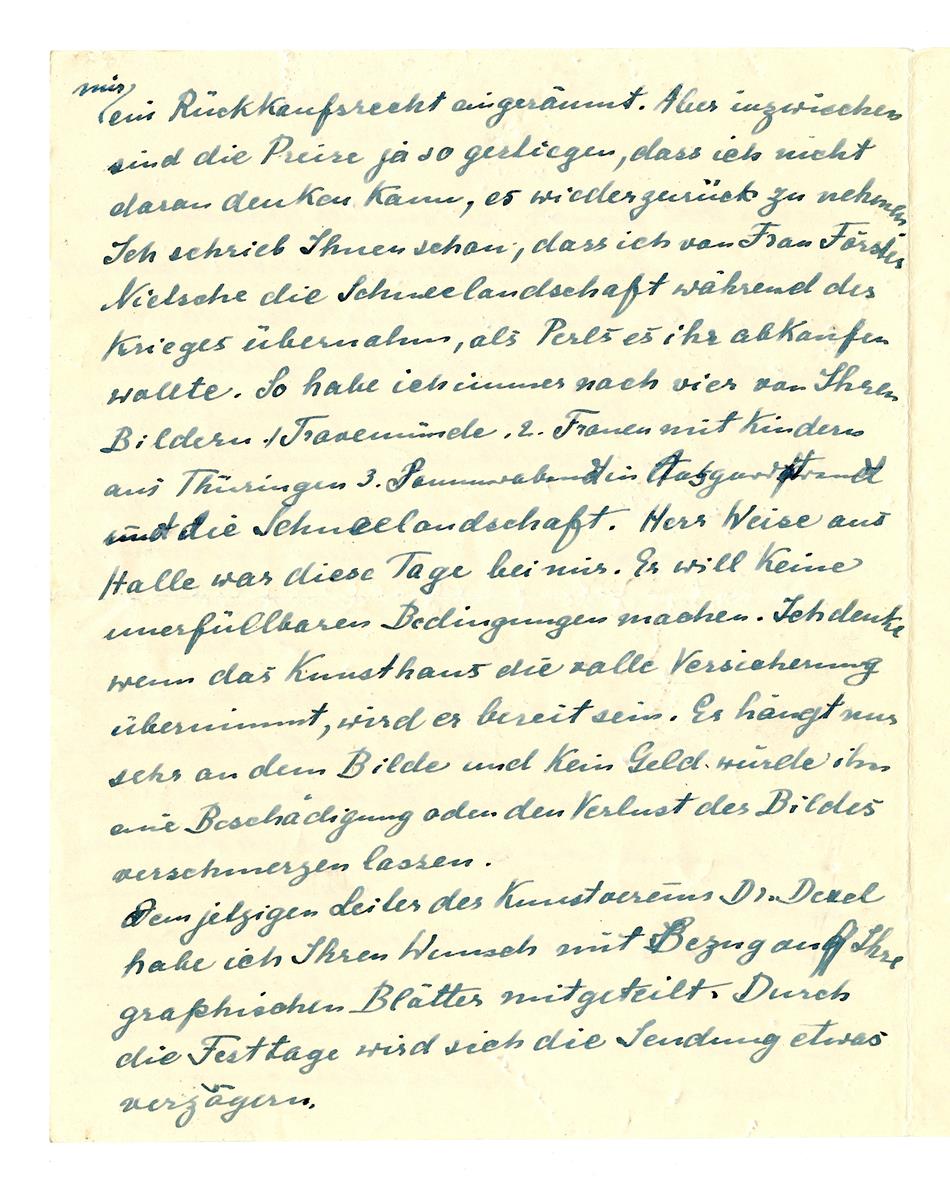 mir
ein Rückkaufsrecht eingeräumt. Aber inzwischen
sind die Preise ja so gestiegen, dass ich nicht
daran denken kann, es wiederzurück zu nehmen
Ich schrieb Ihnen schon, dass ich von Frau Förster
Nietsche die Schneelandschaft während des
Krieges übernahm, als Perls es ihr abkaufen
wollte. So habe ich immer noch vier von Ihren
Bildern. 1 Travemünde . 2. Frauen mit Kindern
aus Thüringen 3. in
und die Schneelandschaft. Herr Weise aus
Halle war diese Tage bei mir. Er will keine
unerfüllbaren Bedingungen machen. Ich denke
wenn das Kunsthaus die volle Versicherung
übernimmt, wird er bereit sein. Er hängt nur
sehr an dem Bilde und kein Geld würde ihn
eine Beschädigung oder den Verlust des Bildes
verschmerzen lassen.
Dem jetzigen Leiter des Kunstvereins Dr. Dexel
habe ich Ihren Wunsch mit Bezug auf Ihre
graphischen Blätter mitgeteilt. Durch
die Festtage wird sich die Sendung etwas
verzögern.